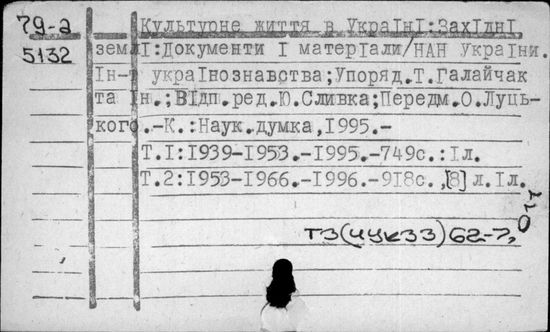 79-а
5132
Культурне життя в Україні:Західні
землі:Документи і матеріали/НАН України.
Ін-т українознавства;Упоряд.Т.Галайчак
та ін.;Відп.ред.Ю.Сливка;Передм.О.Луць-
кого.-К.:Наук.думка,1995.-
Т.1:1939-1953.-1995.-749с.:іл.
Т.2:1953-1966.-1996.-918с.,[8]л.іл.
ТЗ(4УКЗЗ)62-7,